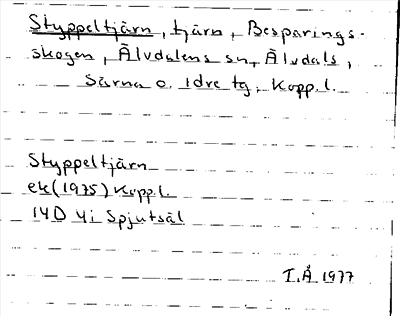 Styppeltjärn, tjärn, Besparings-
skogen, Älvdalens sn, Älvdals,
Särna o. Idre tg, Kopp.l.
Styppeltjärn
ek (1975) Kopp.l.
14D 4i Spjutsäl
I.Å 1977